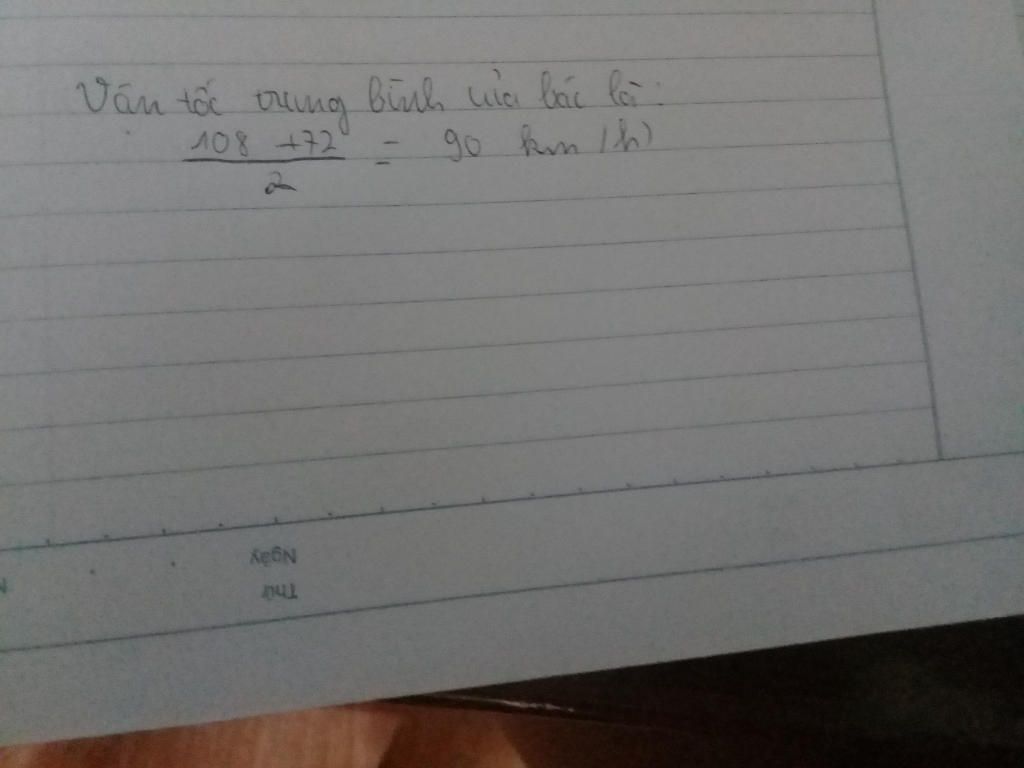 Vân tốc trung bình của bác là:
108 +72
2
= 90 km /h)
Ngày
Thứ